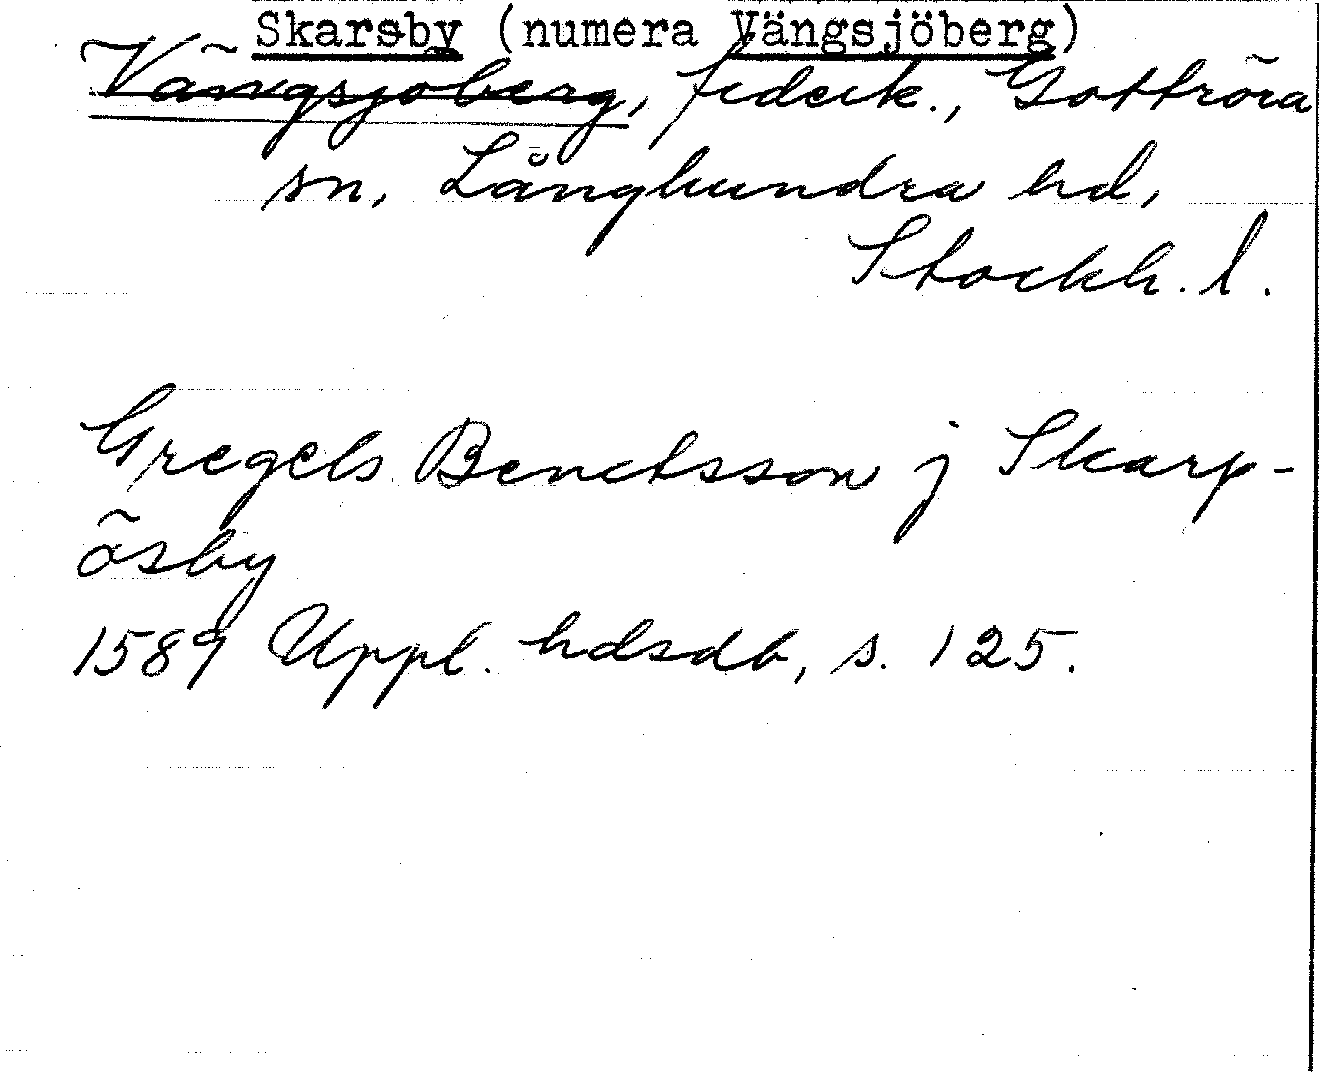 Skarsby (numera Vängsjöberg)
Vängsjöberg, fideik., Gottröra
sn, Långhundra hd,
Stockh. l.
Gregels Benctsson j Skarp-
åsby
1589 Uppl. hdsdb, s. 125.